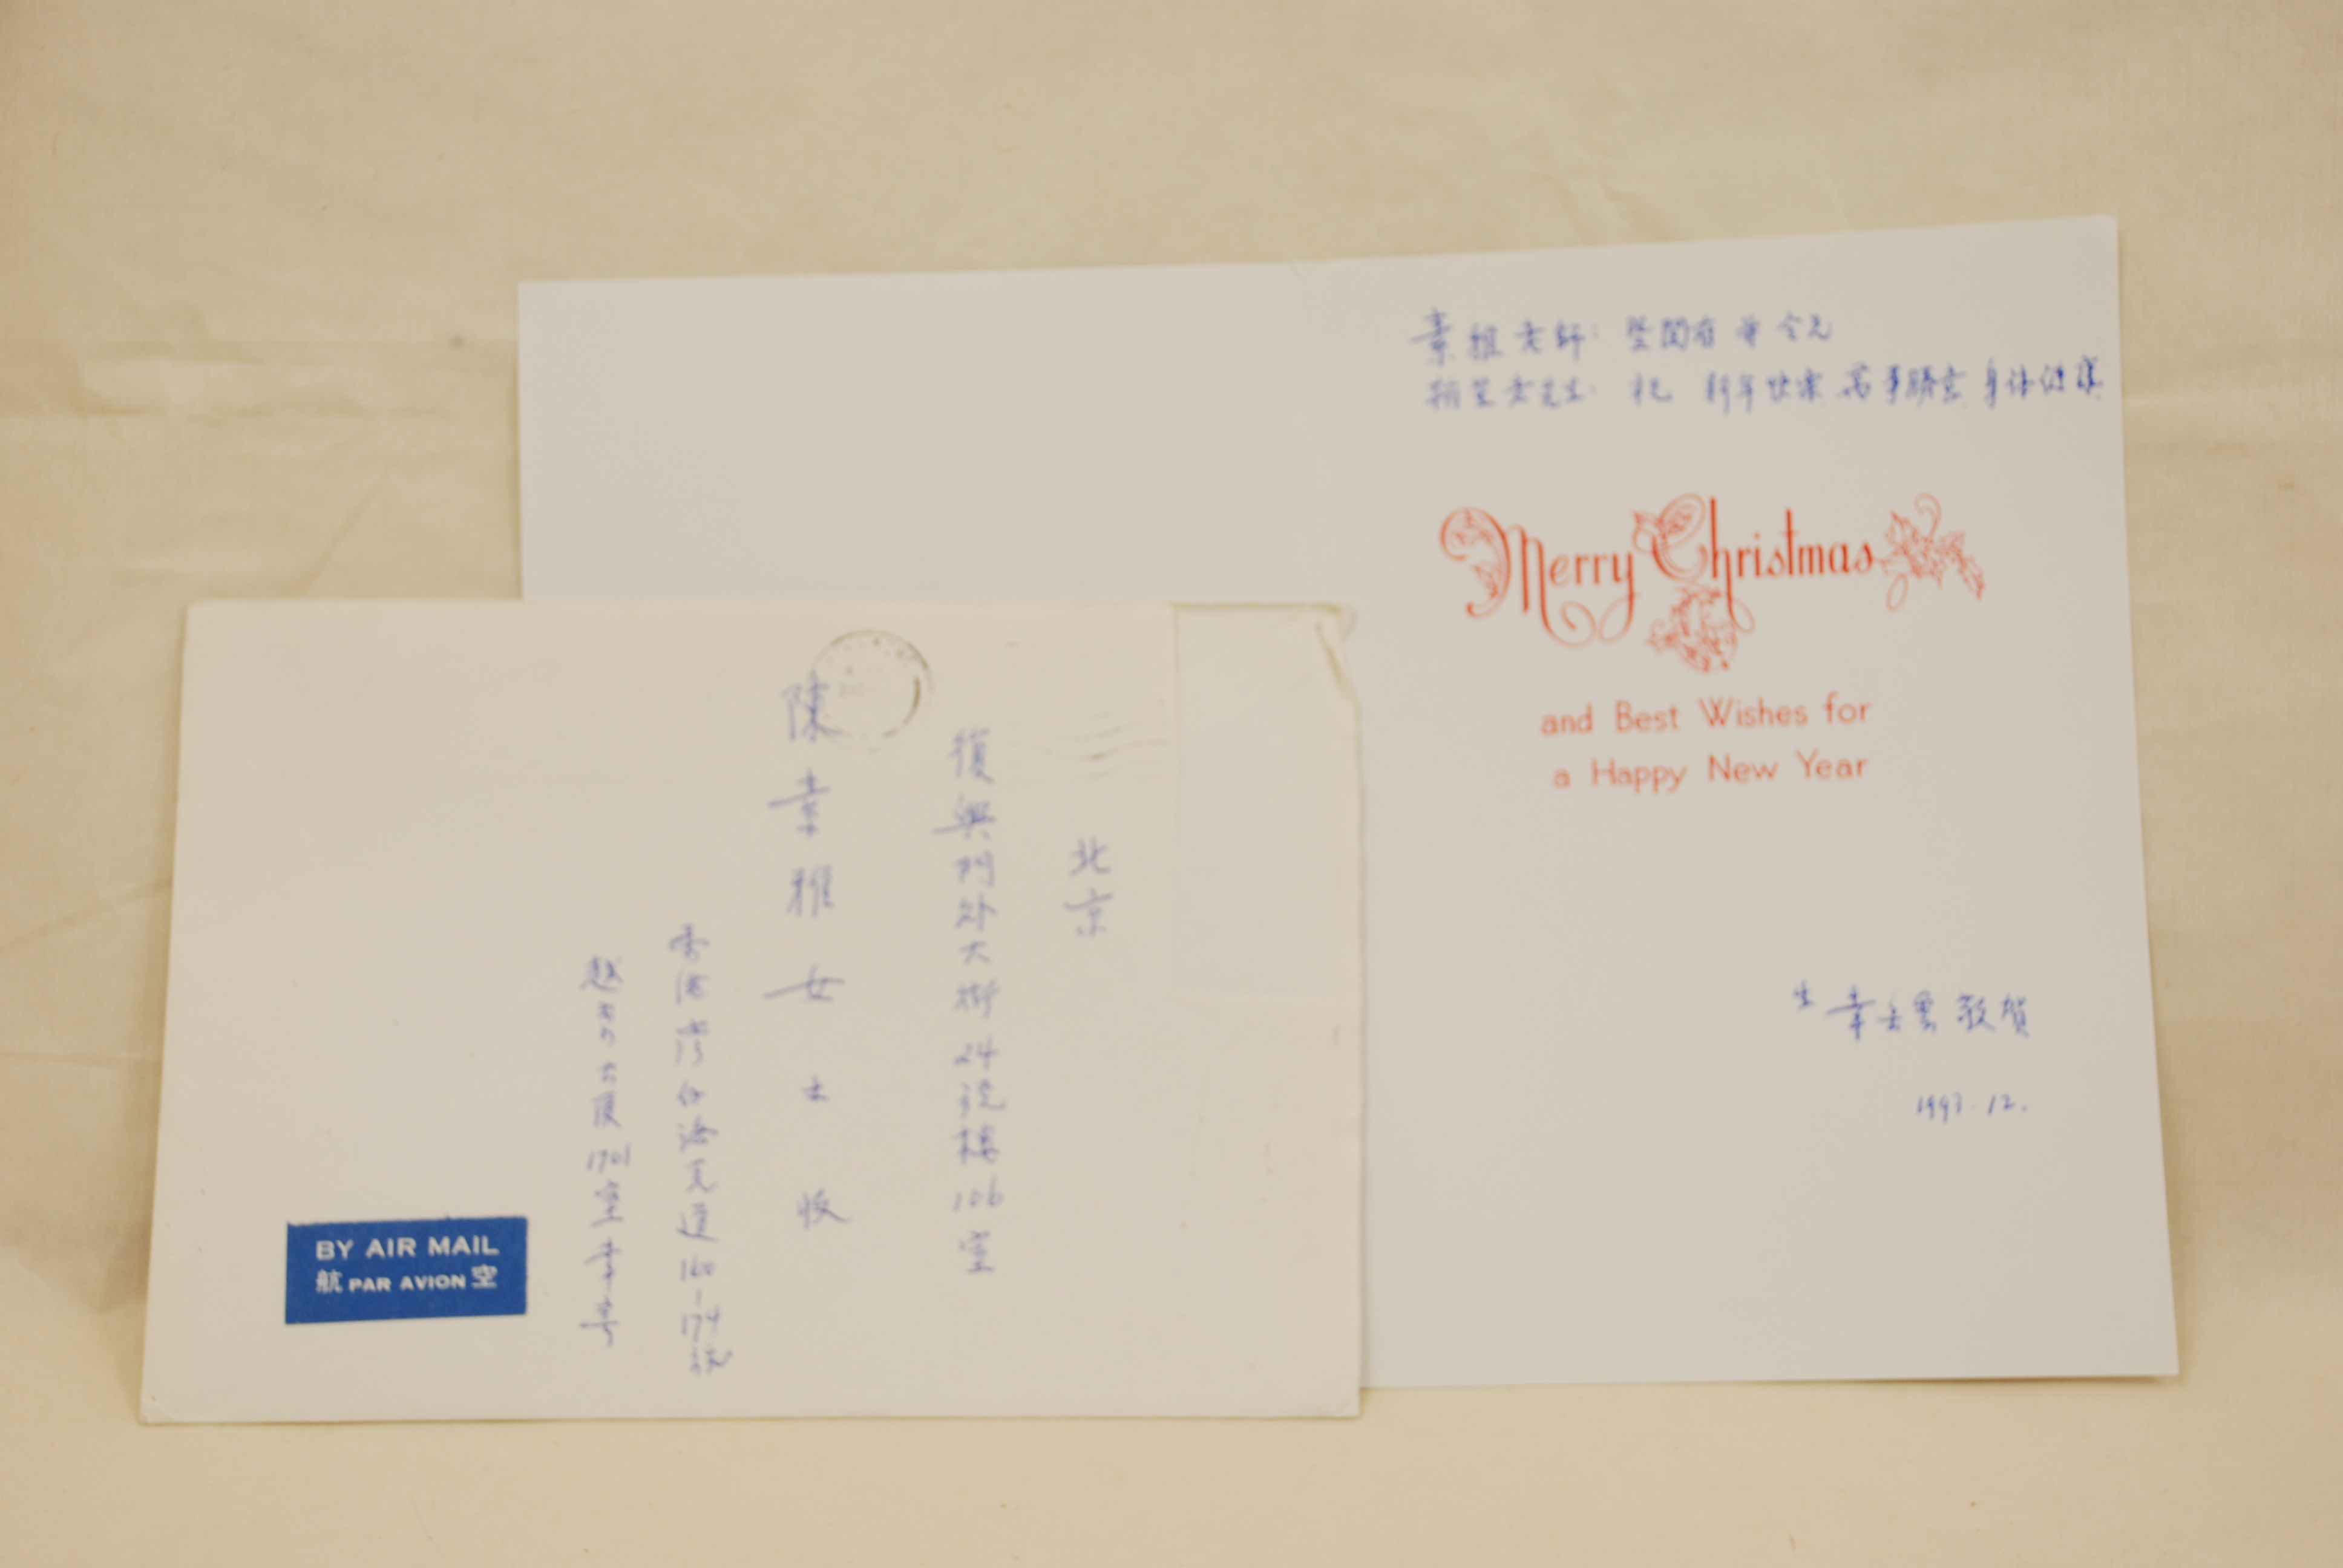 北京
復興門外大街24號樓106室
陳素雅女士收
香港灣仔海天道160-174號
越秀大廈1701室
BY AIR MAIL
航 PAR AVION 空
素雅老師:
老先生: 祝 新年快樂 萬事勝意 身體健康
Merry Christmas
and Best Wishes for
a Happy New Year
生 敬賀
1993.12.